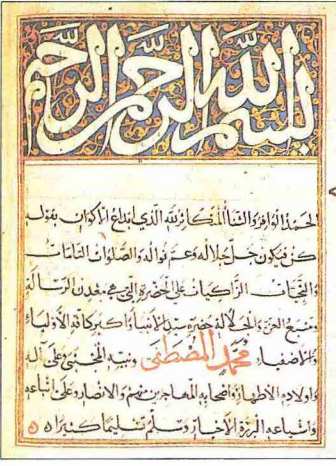 بسم الله الرحمن الرحيم
الحمد الوافر والثنا المتكاثر لله الذي ابدع الاكوان بقوله
كن فيكون جل جلاله وعم نواله والصلوات التامات
والتحيات الزاكيات على الحضرة التي هي معدن الرسالة
ومنبع العز والجلالة حضرة سيد الانبيا واكبر كافة الاوليا
والاصفياء محمد المصطفى ونبيه المجتبى وعلى اله
واولاده الاطهار واصحابه المهاجرين منهم والانصار وعلى اتباعه
واشياعه البررة الاخيار وسلم تسليما كثيرا